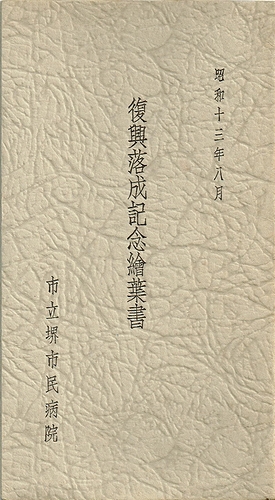 昭和十三年八月
復興落成記念繪葉書
市立堺市民病院